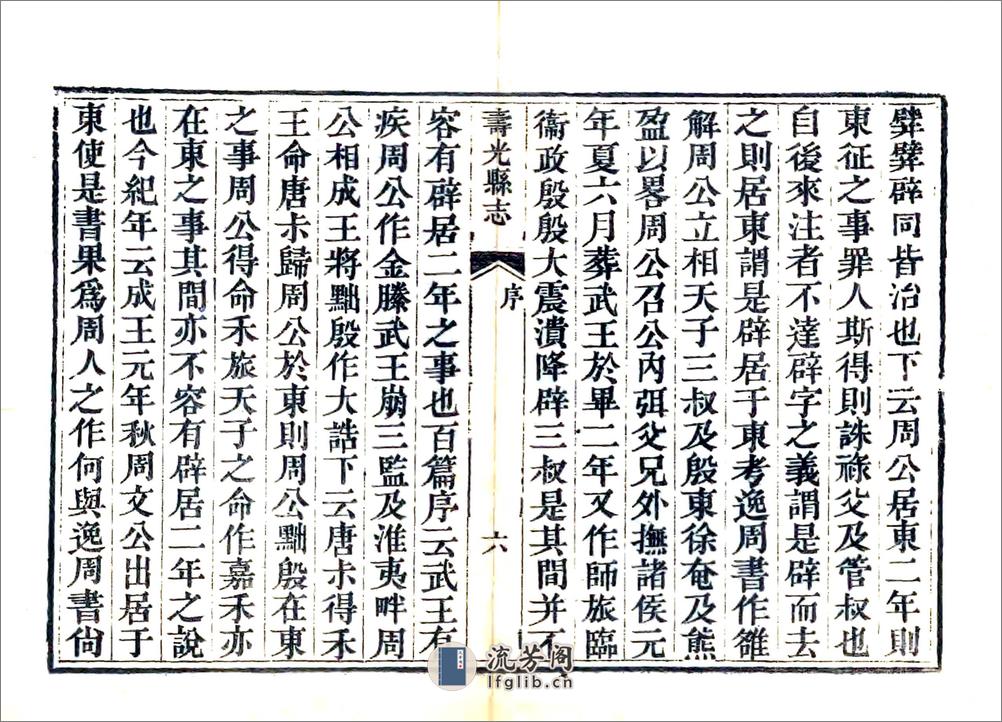 㯤㯤辟同皆治也下云周公居東二年則
東征之事罪人斯得則誅祿父及管叔也
自後來注者不達辟字之義謂是辟而去
之則居東謂是辟居于東考逸周書作雒
解周公立相天子三叔及殷東徐奄及熊
盈以畧周公召公內弭父兄外撫諸侯元
年夏六月葬武王於畢二年又作師旅臨
衞政殷殷大震潰降辟三叔是其間并不
壽光縣志
序
六
容有辟居二年之事也百篇序云武王有
疾周公作金縢武王崩三監及淮夷畔周
公相成王將黜殷作大誥下云唐叔得禾
王命唐叔歸周公於東則周公黜殷在東
之事周公得命禾旅天子之命作嘉禾亦
在東之事其間亦不容有辟居二年之說
也今紀年云成王元年秋周文公出居于
東使是書果爲周人之作何與逸周書尙
流芳阁
lfglib.cn